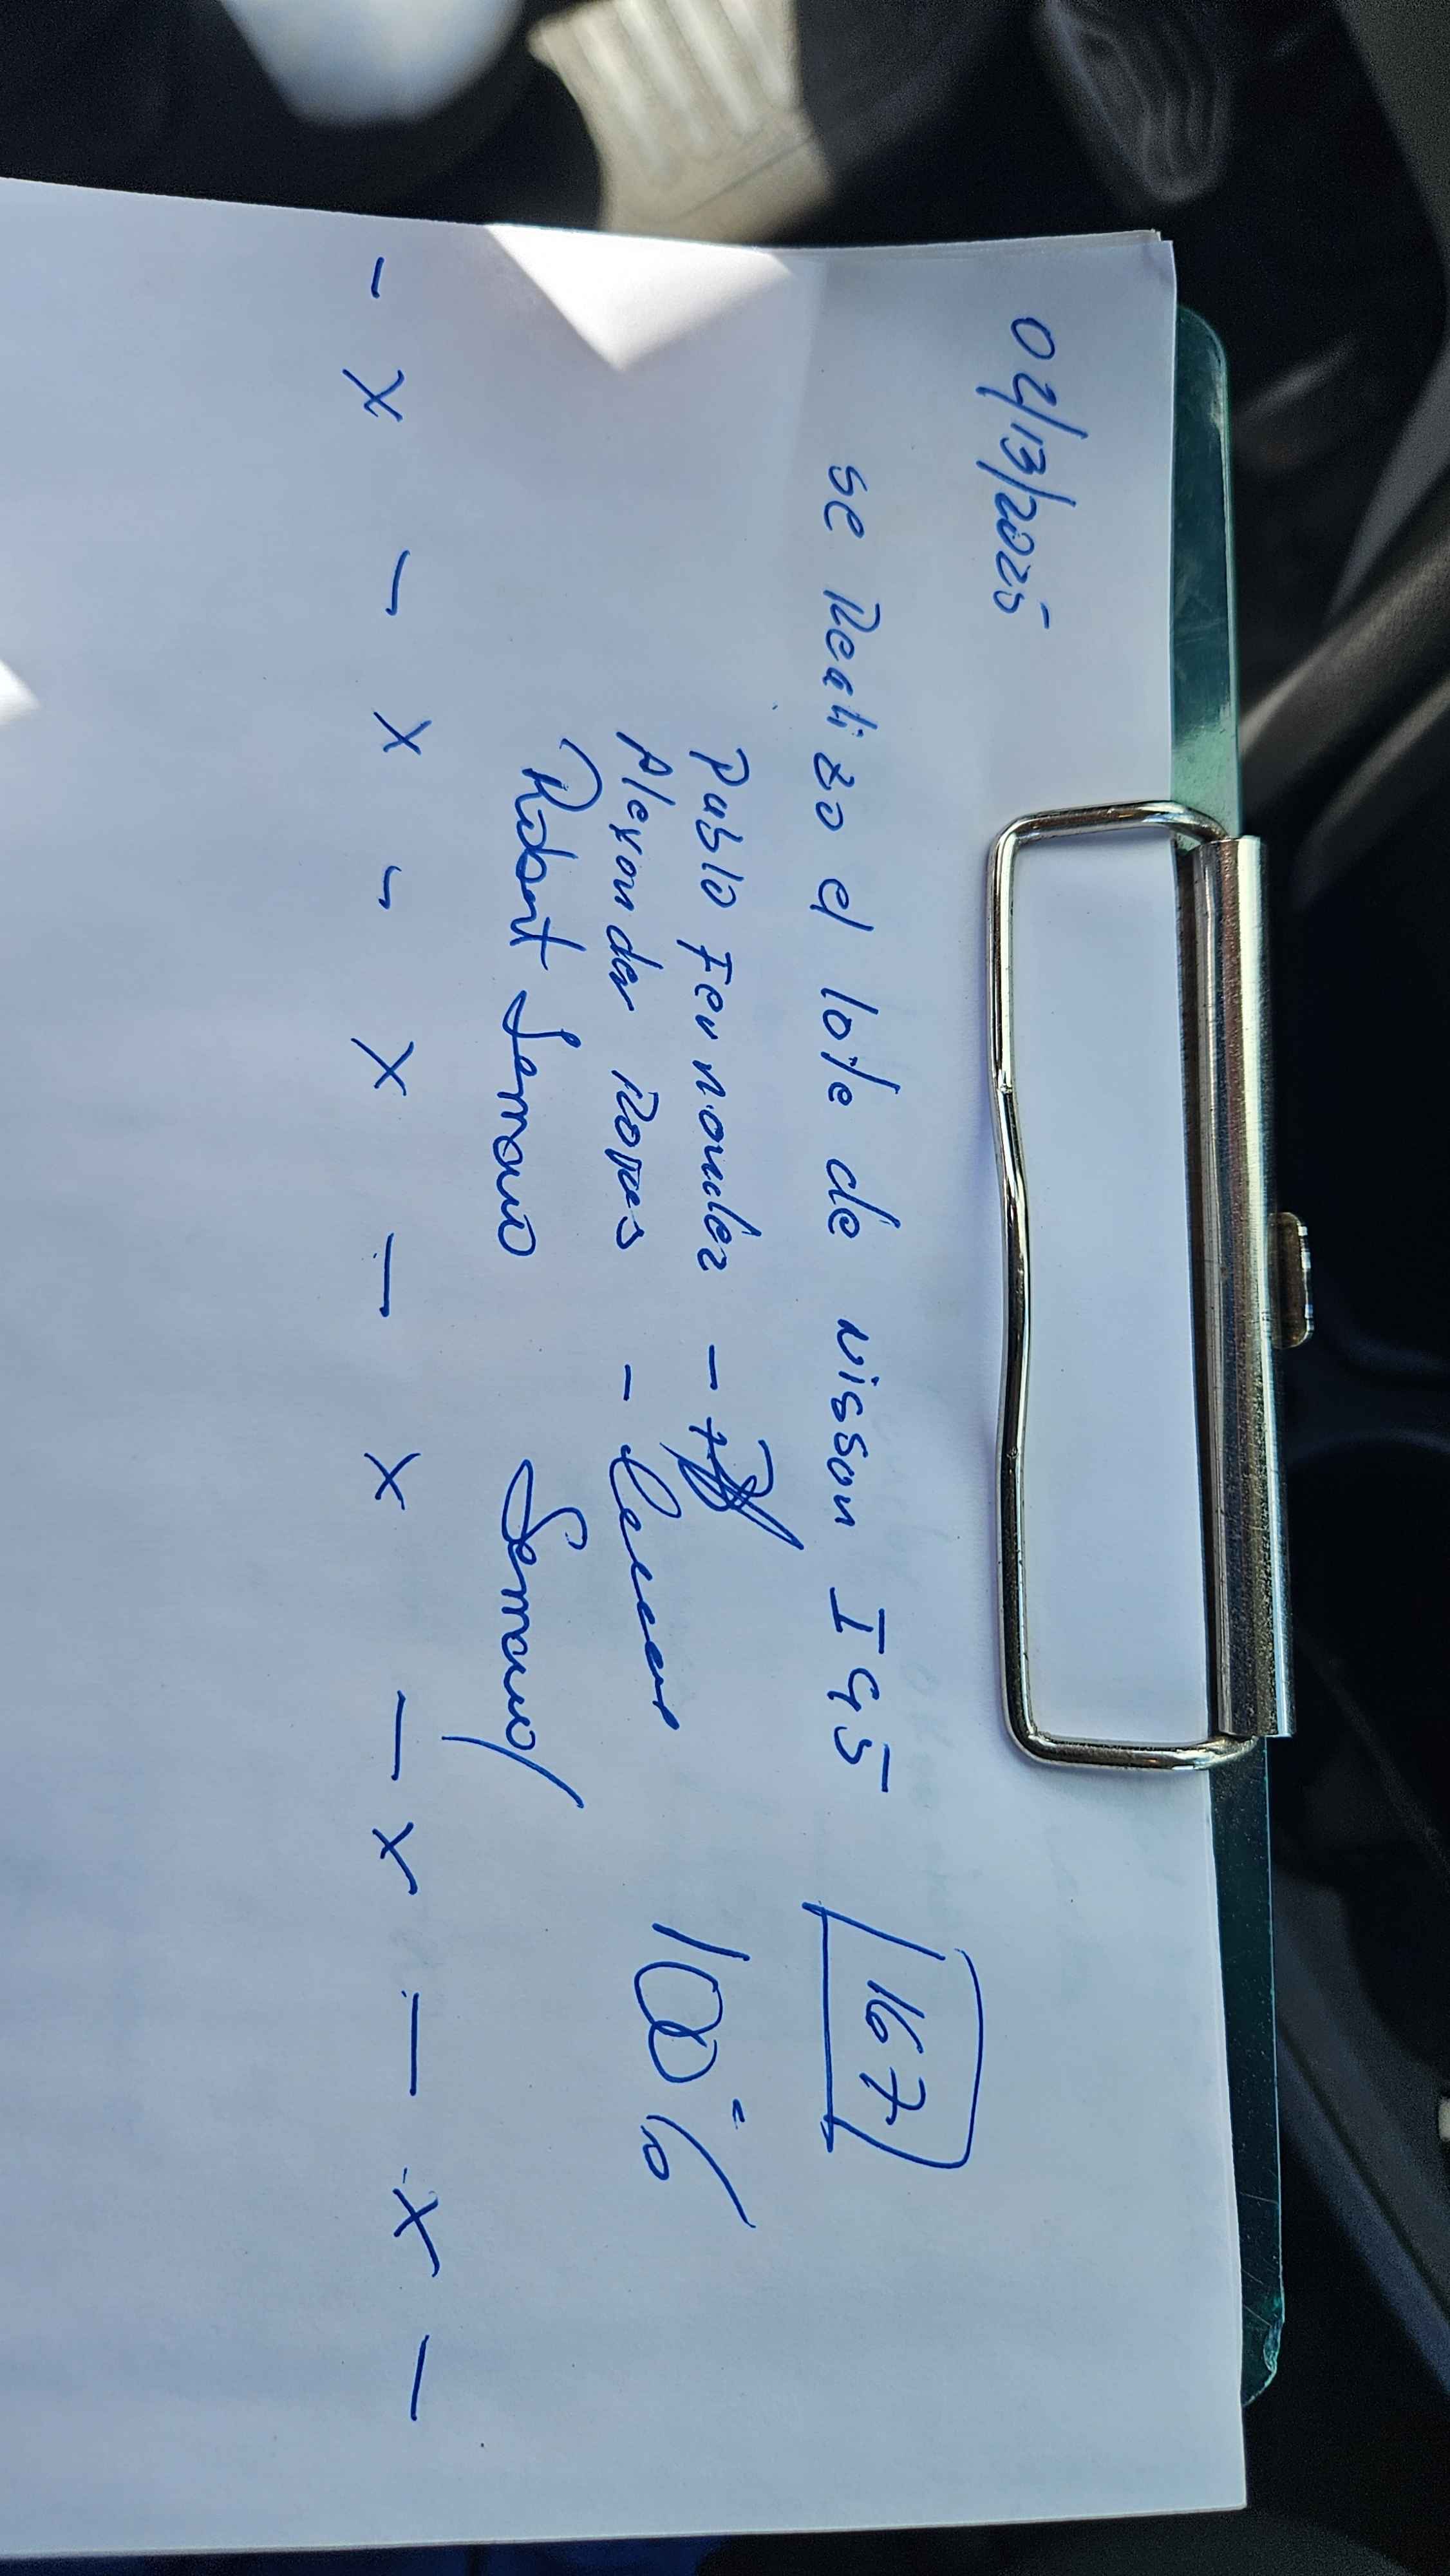 04/13/2025
se Realizo el lote de nisson I95 167
Pablo Fernandez -
Alexander Rojas - 100%
Robert Serrano Serrano
- x - x - x - x - x - x -